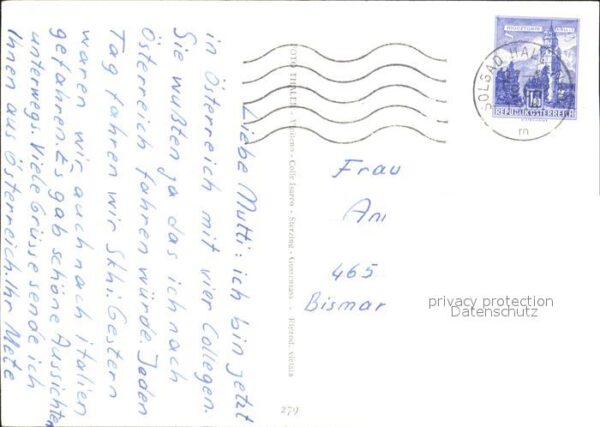 Liebe Mutti: ich bin jetzt
in Österreich mit vier Collegen.
Sie wußten ja das ich nach
Österreich fahren würde. Jeden
Tag fahren wir Skhi. Gestern
waren wir auch nach italien
gefahren. Es gab schöne Aussichten
unterwegs. Viele Grüsse sende ich
Ihnen aus Österreich. Ihr Mete
Frau
Ani
465
Bismar
privacy protection
Datenschutz
SOLBAD HALL
m
REPUBLIK ÖSTERREICH
279